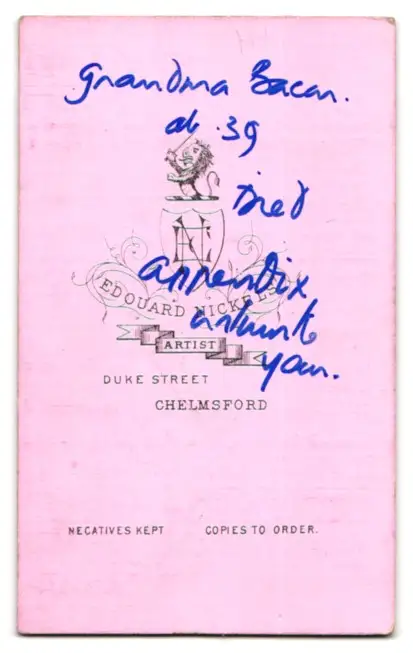 Grandma Bacon.
at 39
Died
EN
appendix
EDOUARD NICKELS
ARTIST
your.
DUKE STREET
CHELMSFORD
NEGATIVES KEPT COPIES TO ORDER.